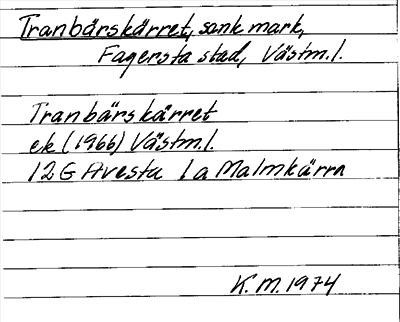 Tranbärskärret, sank mark,
Fagersta stad, Västm.l.
Tranbärskärret
ek (1966) Västm.l.
12G Avesta 1a Malmkärra
K.M. 1974